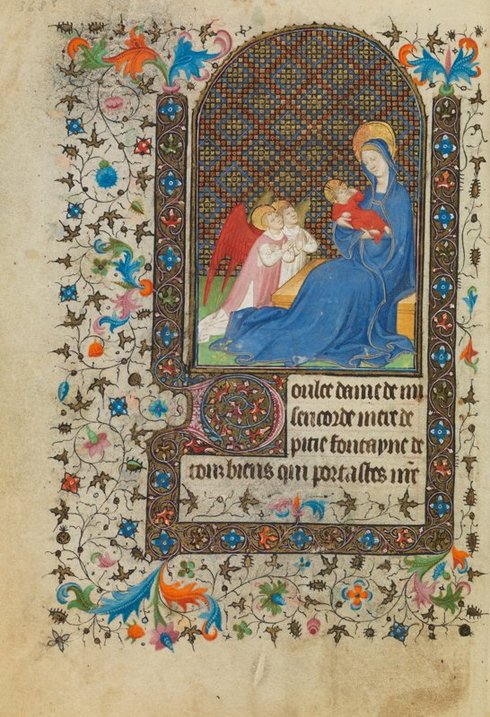 Doulce dame de mi
sericorde mere de
pitie fontayne de
tour biens qui portastes nr̃e